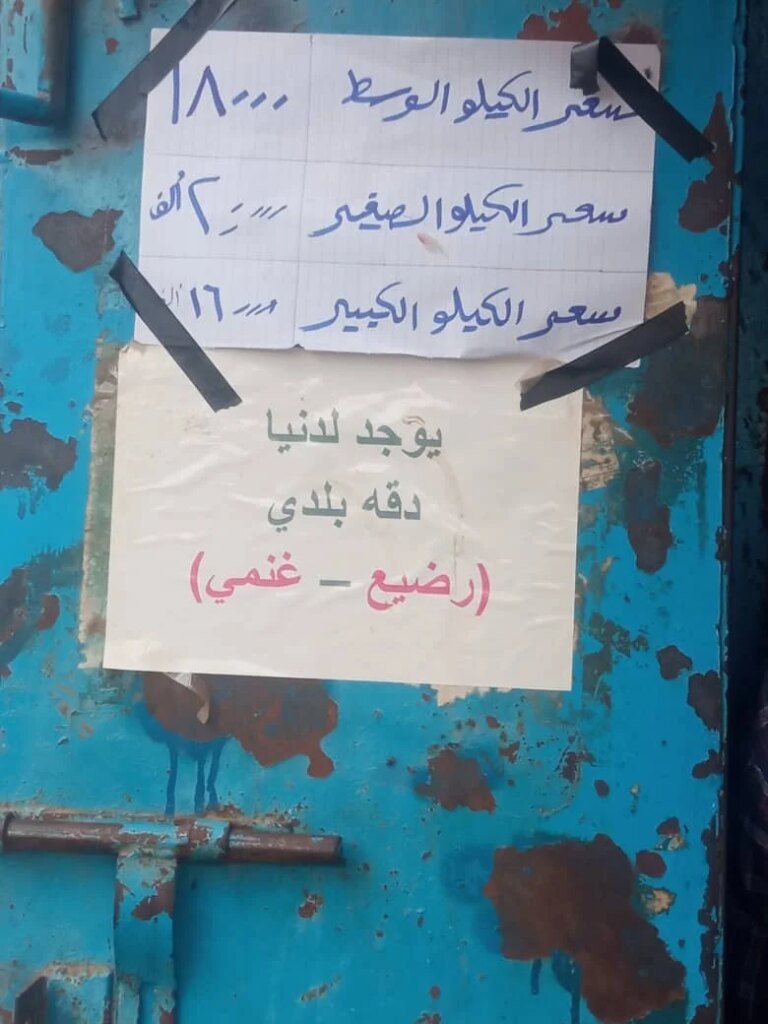 سعر الكيلو الوسط ١٨٠٠٠
سعر الكيلو الصغير ٢٠٠٠٠ ألف
سعر الكيلو الكبير ١٦٠٠٠ ألف
يوجد لدنيا
دقه بلدي
(رضيع – غنمي)